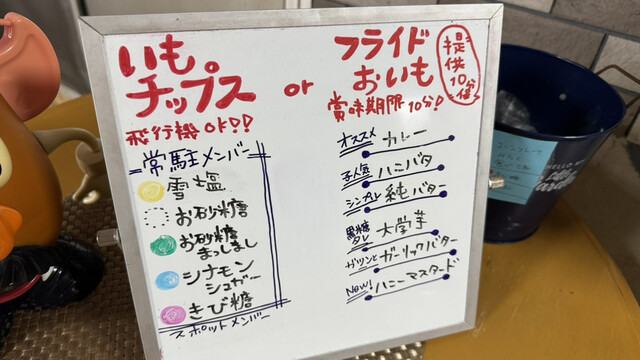 いも。
チップス
飛行機OK!!
常駐メンバー
雪塩
お砂糖
お砂糖
まっしまし
シナモン
シュガー
きび糖
スポットメンバー
or
フライド
おいも
提供10分位
賞味期限10分!
オススメ カレー
子人気 ハニバタ
シンプル 純バター
黒糖タレ 大学芋
ガツンと ガーリックバター
New! ハニーマスタード